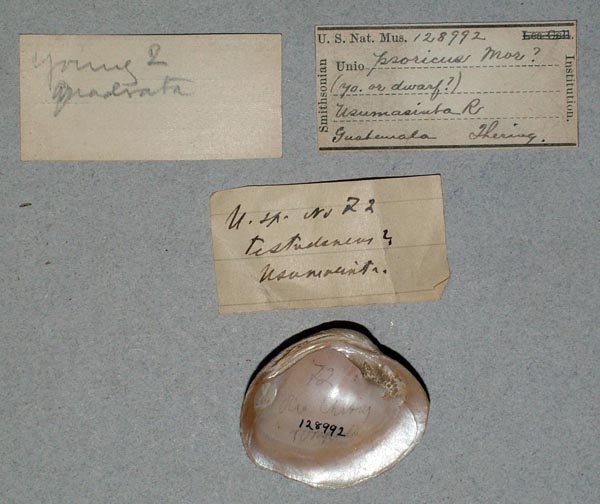 young ?
quadrata
U. S. Nat. Mus. 128992 Lea Coll.
Smithsonian
Institution.
Unio psoricus Mor?
(yo. or dwarf?)
Usumasinta R
Guatemala Ihering.
U. sp. No 72
testudineus?
Usumacinta.
72
128992